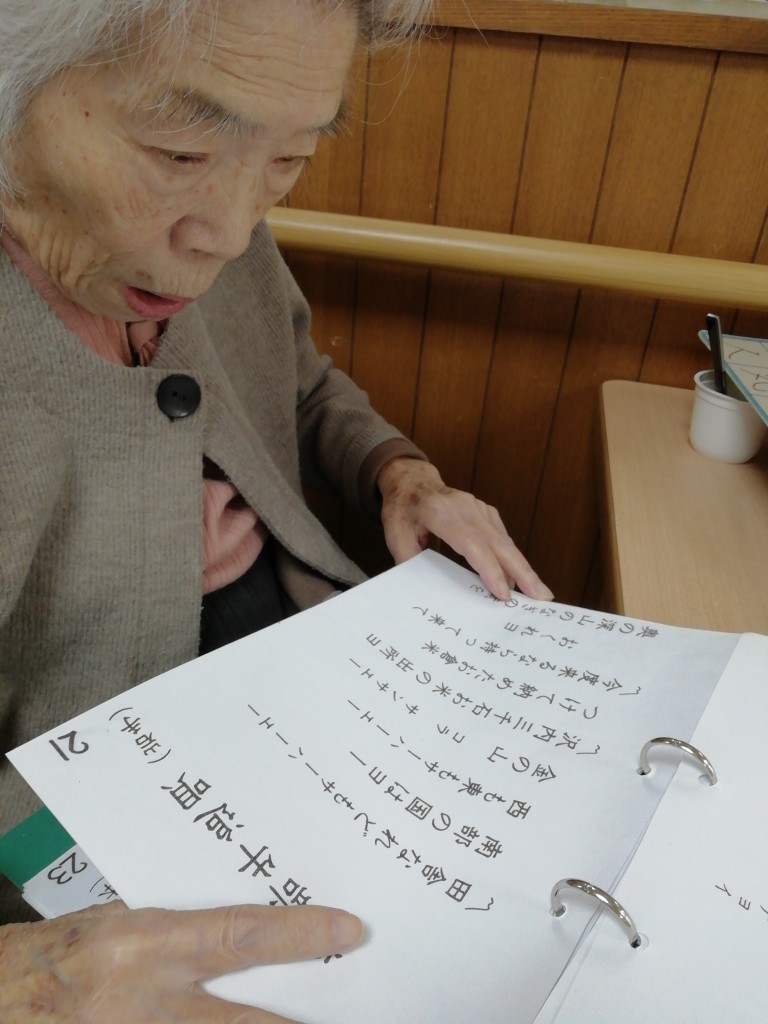 牛追唄 (岩手)
21
〽田舎なれどもサーハーエー
南部の国はヨー
西も東もサーハーエー
金の山 コラ サンサエー
〽沢内三千石お米の出所ヨ
つけて納めたお倉米
〽今度来るなら持って来て
おくれヨ
奥の深山のなぎの葉を
23
ョイ
20